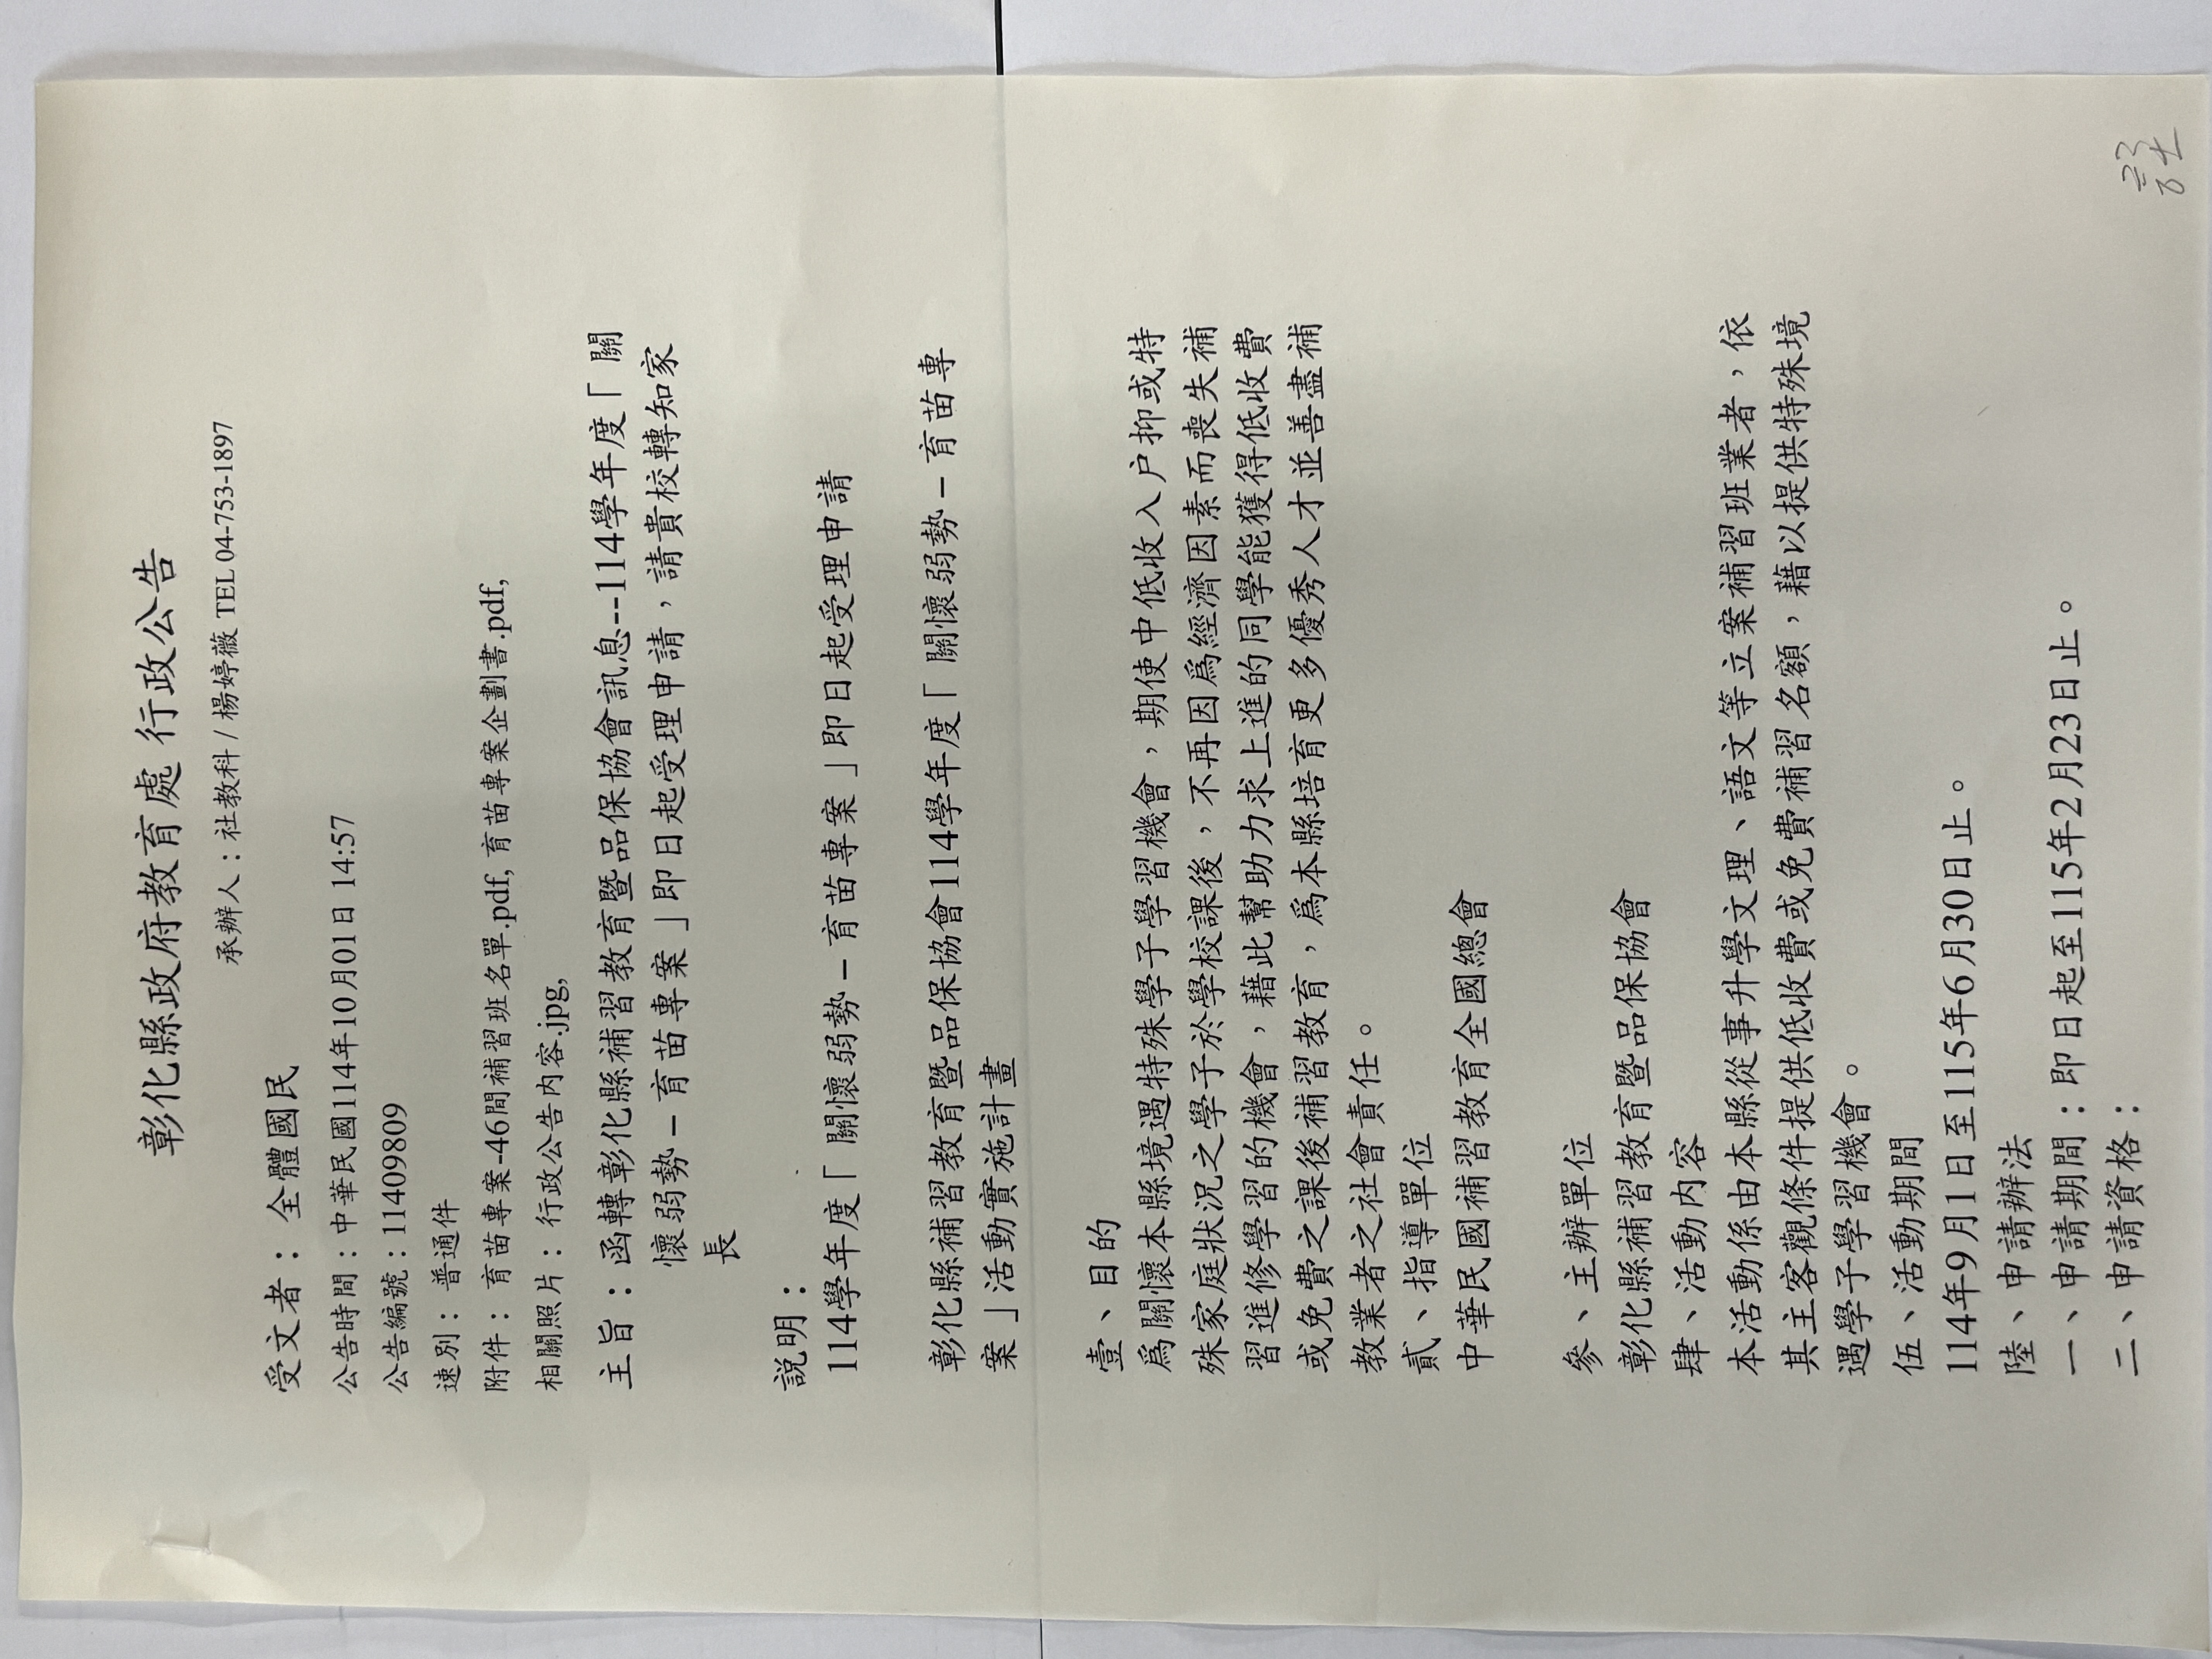 彰化縣政府教育處 行政公告
承辦人：社教科 / 楊婷薇 TEL 04-753-1897
受文者： 全體國民
公告時間：中華民國114年10月01日 14:57
公告編號：11409809
速別： 普通件
附件： 育苗專案-46間補習班名單.pdf, 育苗專案企劃書.pdf,
相關照片： 行政公告內容.jpg,
主旨：函轉彰化縣補習教育暨品保協會訊息--114學年度「關
懷弱勢－育苗專案」即日起受理申請，請貴校轉知家
長
說明：
114學年度「關懷弱勢－育苗專案」即日起受理申請
彰化縣補習教育暨品保協會114學年度「關懷弱勢－育苗專
案」活動實施計畫
壹、目的
為關懷本縣境遇特殊學子學習機會，期使中低收入戶抑或特
殊家庭狀況之學子於學校課後，不再因為經濟因素而喪失補
習進修學習的機會，藉此幫助力求上進的同學能獲得低收費
或免費之課後補習教育，為本縣培育更多優秀人才並善盡補
教業者之社會責任。
貳、指導單位
中華民國補習教育全國總會
參、主辦單位
彰化縣補習教育暨品保協會
肆、活動內容
本活動係由本縣從事升學文理、語文等立案補習班業者，依
其主客觀條件提供低收費或免費補習名額，藉以提供特殊境
遇學子學習機會。
伍、活動期間
114年9月1日至115年6月30日止。
陸、申請辦法
一、申請期間：即日起至115年2月23日止。
二、申請資格：